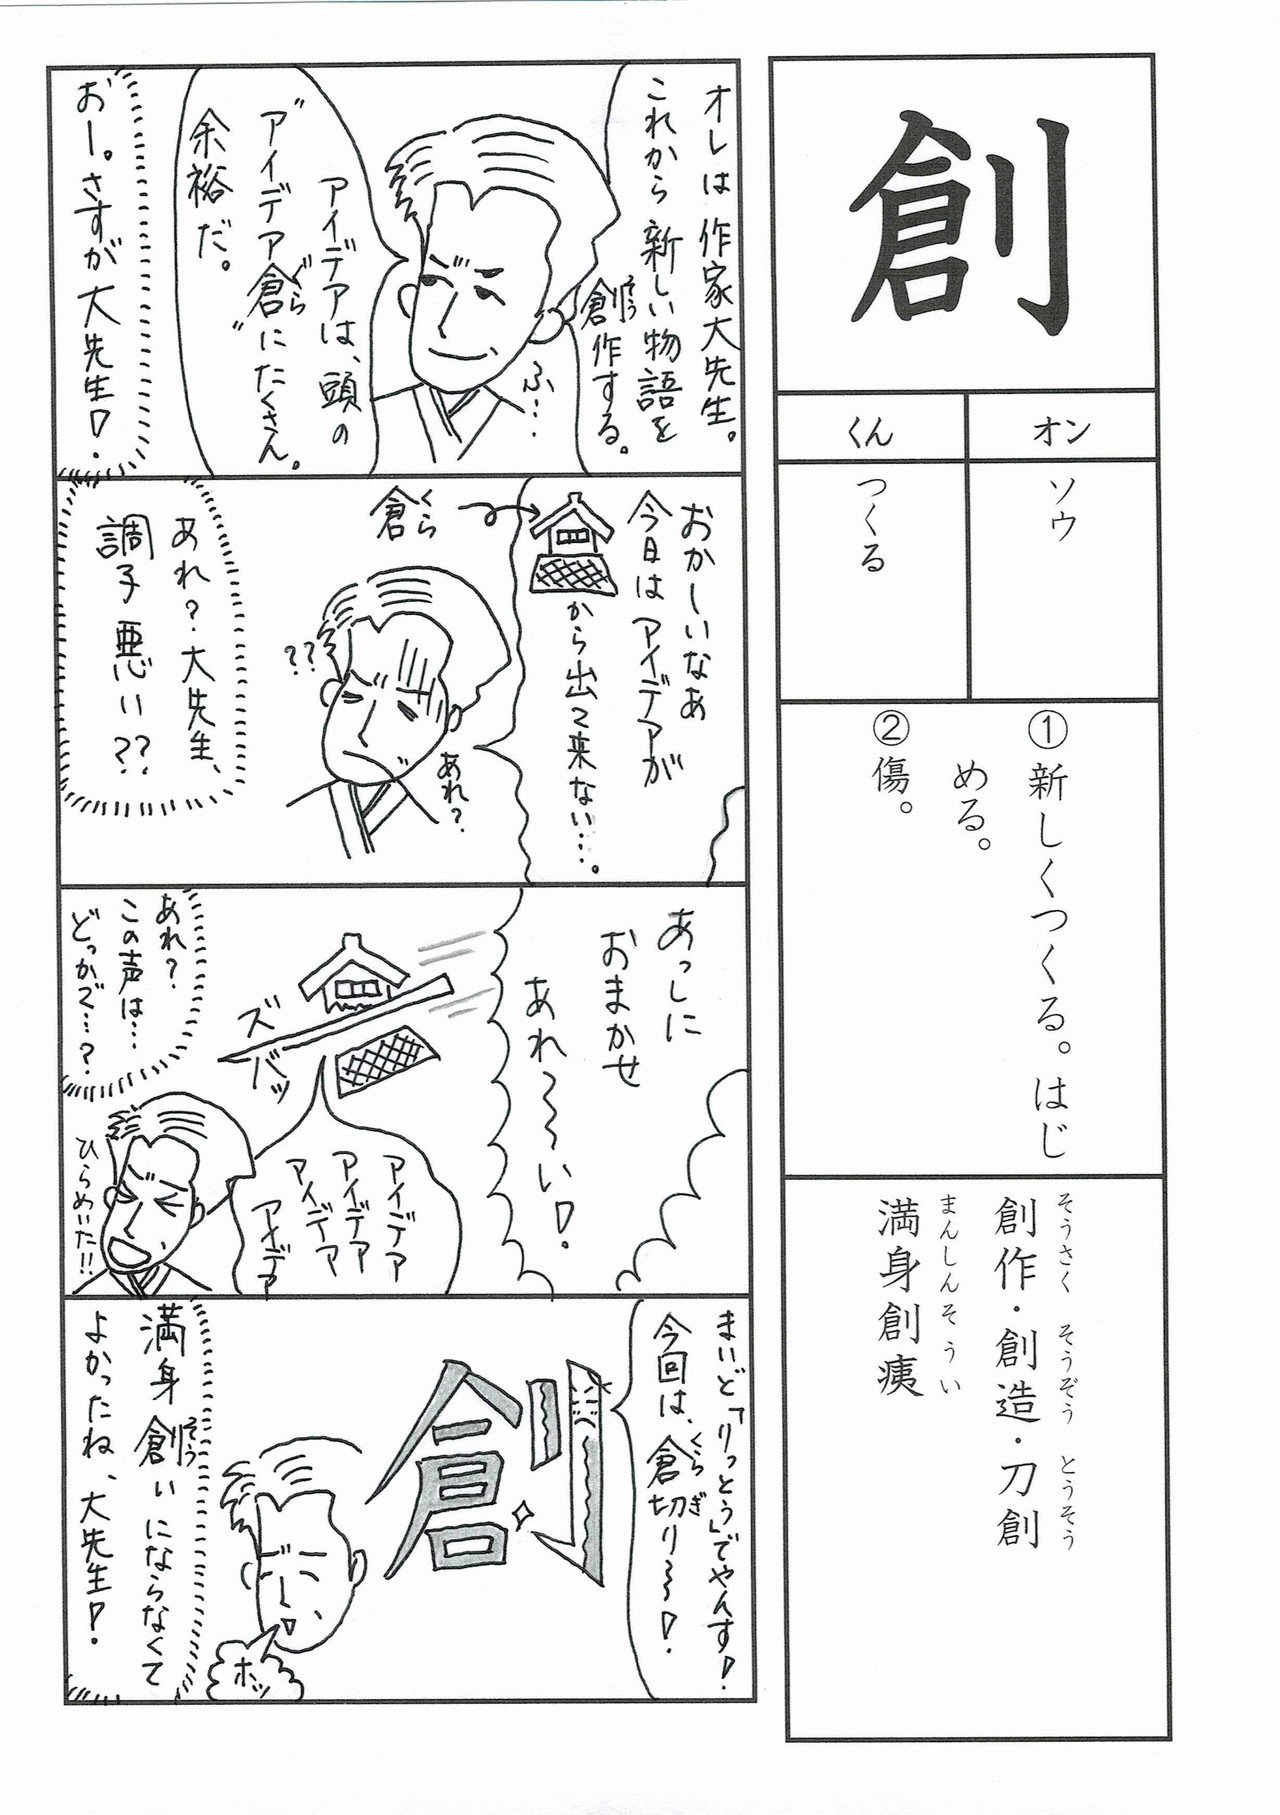 創
オン
くん
ソウ
つくる
①新しくつくる。はじ
める。
②傷。
そうさく そうぞう とうそう
創作・創造・刀創
まんしんそうい
満身創痍
オレは作家大先生。
これから新しい物語を
創作する。
そう
ふ…
アイデアは、頭の
"アイデア倉"にたくさん。
ぐら
余裕だ。
おー。さすが大先生!
おかーいなあ
今日はアイデアが
から出て来ない…。
倉
くら
あれ?
???
あれ?大先生、
調子悪い??
あっしに
おまかせ
あれ〜〜い!
ズバッ
アイデア
アイデア
アイデア
アイデア
ひらめいた!!
あれ?
この声は…
どっかで…?
まいど「りっとう」でやんす!
今回は、倉切り〜〜!
くらぎ
創
ホッ
満身創いにならなくて
そう
よかったね、大先生!